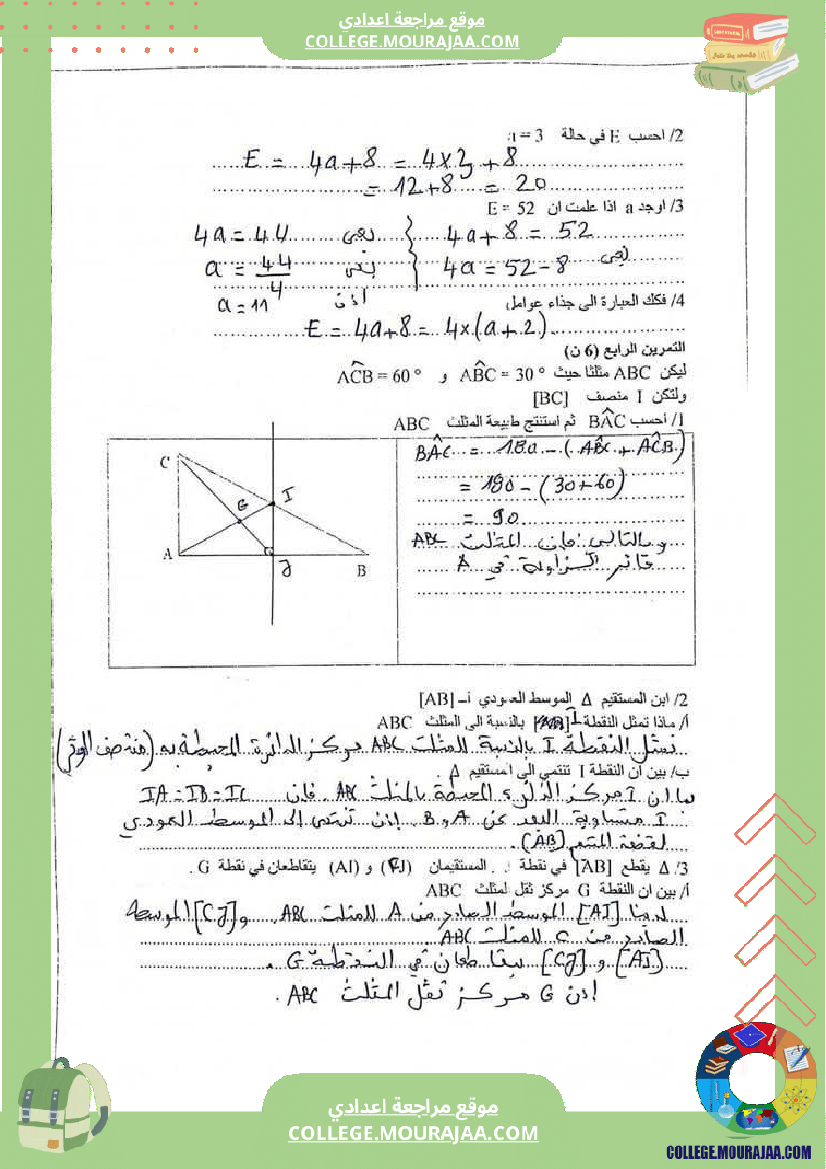 موقع مراجعة اعدادي
COLLEGE.MOURAJAA.COM
2/ احسب E في حالة a = 3
E = 4a + 8 = 4 x 3 + 8
= 12 + 8 = 20
3/ اوجد a اذا علمت ان E = 52
4a + 8 = 52 يعني 4a = 44
يعني 4a = 52 - 8 يعني a = 44/4
اذن a = 11
4/ فكك العبارة الى جذاء عوامل
E = 4a + 8 = 4 x (a + 2)
التمرين الرابع (6 ن)
ليكن ABC مثلثا حيث ABC = 30° و ACB = 60°
ولتكن I منصف [BC]
1/ أحسب BAC ثم أستنتج طبيعة المثلث ABC
BAC = 180 - (ABC + ACB)
= 180 - (30+60)
= 90
و بالتالي فإن المثلث ABC
قائم الزاوية في A
C
G
I
A
J
B
2/ ابن المستقيم Δ الموسط العمودي لـ [AB]
أ/ ماذا تمثل النقطة I بالنسبة الى المثلث ABC
تمثل النقطة I بالنسبة للمثلث ABC مركز الدائرة المحيطة به (منتصف الوتر)
ب/ بين ان النقطة I تنتمي الى المستقيم Δ.
بما ان I مركز الدائرة المحيطة بالمثلث ABC فإن IA = IB = IC
I متساوية البعد عن A و B. إذن تنتمي إلى الموسط العمودي
لقطعة المستقيم [AB].
3/ Δ يقطع [AB] في نقطة J. المستقيمان (CJ) و (AI) يتقاطعان في نقطة G.
أ/ بين ان النقطة G مركز ثقل لمثلث ABC
لدينا [AI] الموسط الصادر من A للمثلث ABC و [CJ] الموسط
الصادر من C للمثلث ABC.
[AI] و [CJ] يتقاطعان في النقطة G.
إذن G مركز ثقل المثلث ABC.
موقع مراجعة اعدادي
COLLEGE.MOURAJAA.COM
COLLEGE.MOURAJAA.COM